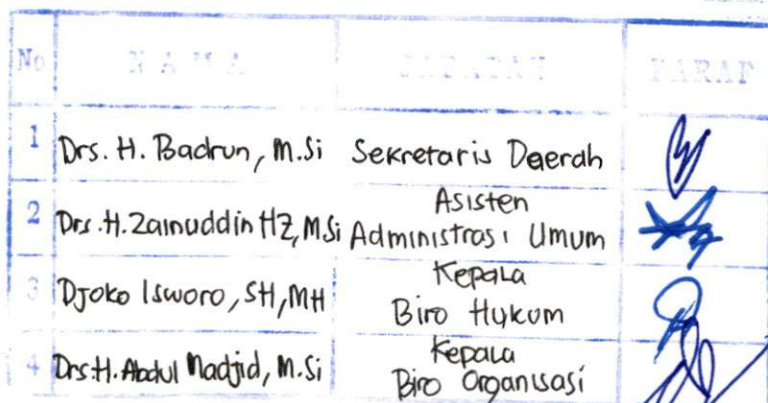 No NAMA JABATAN PARAF
1 Drs. H. Badrun, M.Si Sekretaris Daerah
2 Drs. H. Zainuddin HZ, M.Si Asisten
Administrasi Umum
3 Djoko Isworo, SH, MH Kepala
Biro Hukum
4 Drs H. Abdul Madjid, M.Si Kepala
Biro Organisasi